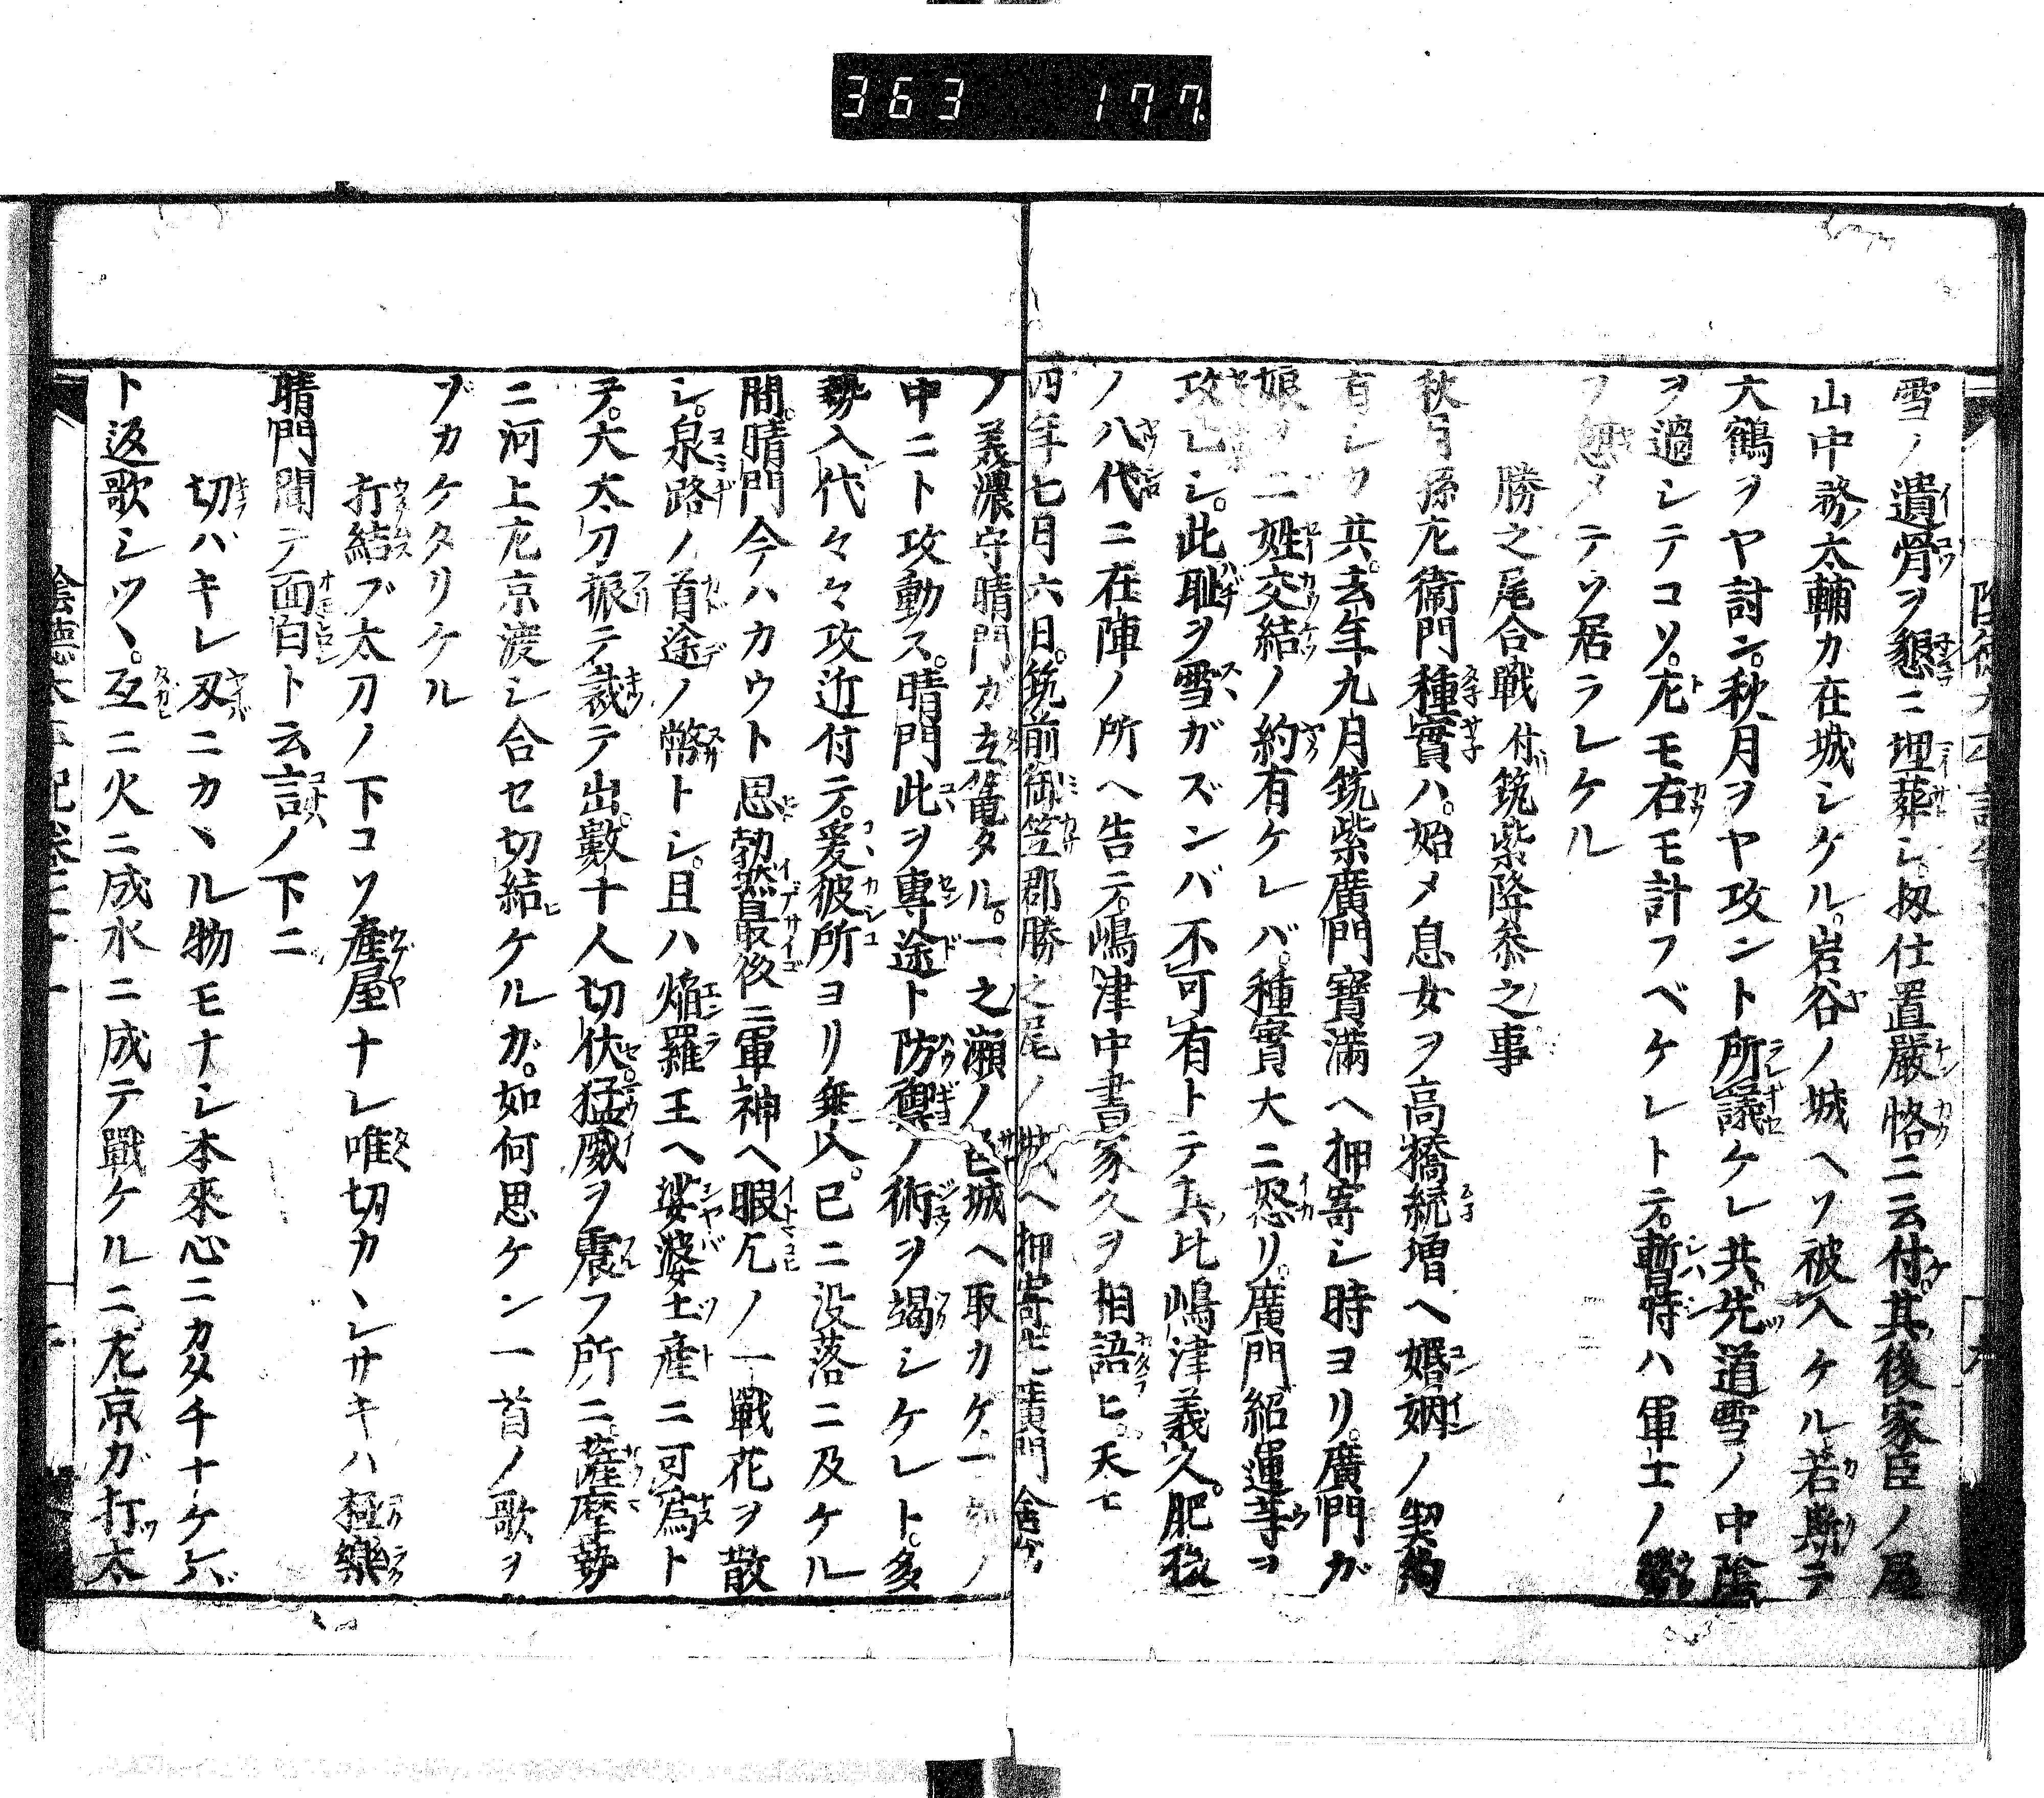 363 177
雪ノ遺骨ヲ懇ニ埋葬シ扨仕置嚴恪ニ云付其後家臣ノ居
山中務太輔カ在城シケル岩谷ノ城ヘソ被入ケル若斯テ
大鶴ヲヤ討ン秋月ヲヤ攻ント所議ケレ共先道雪ノ中陰
ヲ過シテコソ左モ右モ計フベケレトテ暫時ハ軍士ノ
テソ居ラレケル
勝之尾合戰付筑紫降参之事
秋月孫左衞門種實ハ始メ息女ヲ高橋統増ヘ婚姻ノ契約
有シカ共去年九月筑紫廣門寶滿ヘ押寄シ時ヨリ廣門ガ
娘ヲ二姓交結ノ約有ケレバ種實大ニ怒リ廣門紹運等ヲ
攻亡シ此耻ヲ雪ガズンバ不可有トテ其比嶋津義久肥後
ノ八代ニ在陣ノ所ヘ告テ嶋津中書家久ヲ相語ヒ天正
四年七月六日筑前御笠郡勝之尾ノ城ヘ押寄先廣門舎弟
ノ美濃守晴門ガ立篭タル一之瀬ノ邑城ヘ取カケ一
中ニト攻動ス晴門此ヲ專途ト防禦ノ術ヲ竭シケレト多
勢入代々々攻近付テ爰彼所ヨリ乗入已ニ没落ニ及ケル
間晴門今ハカウト思勃然最後ニ軍神ヘ暇乞ノ一戰花ヲ散
シ泉路ノ首途ノ幣トシ且ハ焔羅王ヘ娑婆土産ニ可爲ト
テ大太刀振テ裁テ出數十人切伏猛威ヲ震フ所ニ薩摩勢
ニ河上左京渡シ合セ切結ケルガ如何思ケン一首ノ歌ヲ
ブカケタリケル
打結ブ太刀ノ下コソ產屋ナレ唯切カヽレサキハ極樂
晴門聞テ面白ト云言ノ下ニ
切ハキレ刄ニカヽル物モナシ本來心ニカタチナケレバ
ト返歌シツヽ互ニ火ニ成水ニ成テ戰ケルニ左京ガ打太